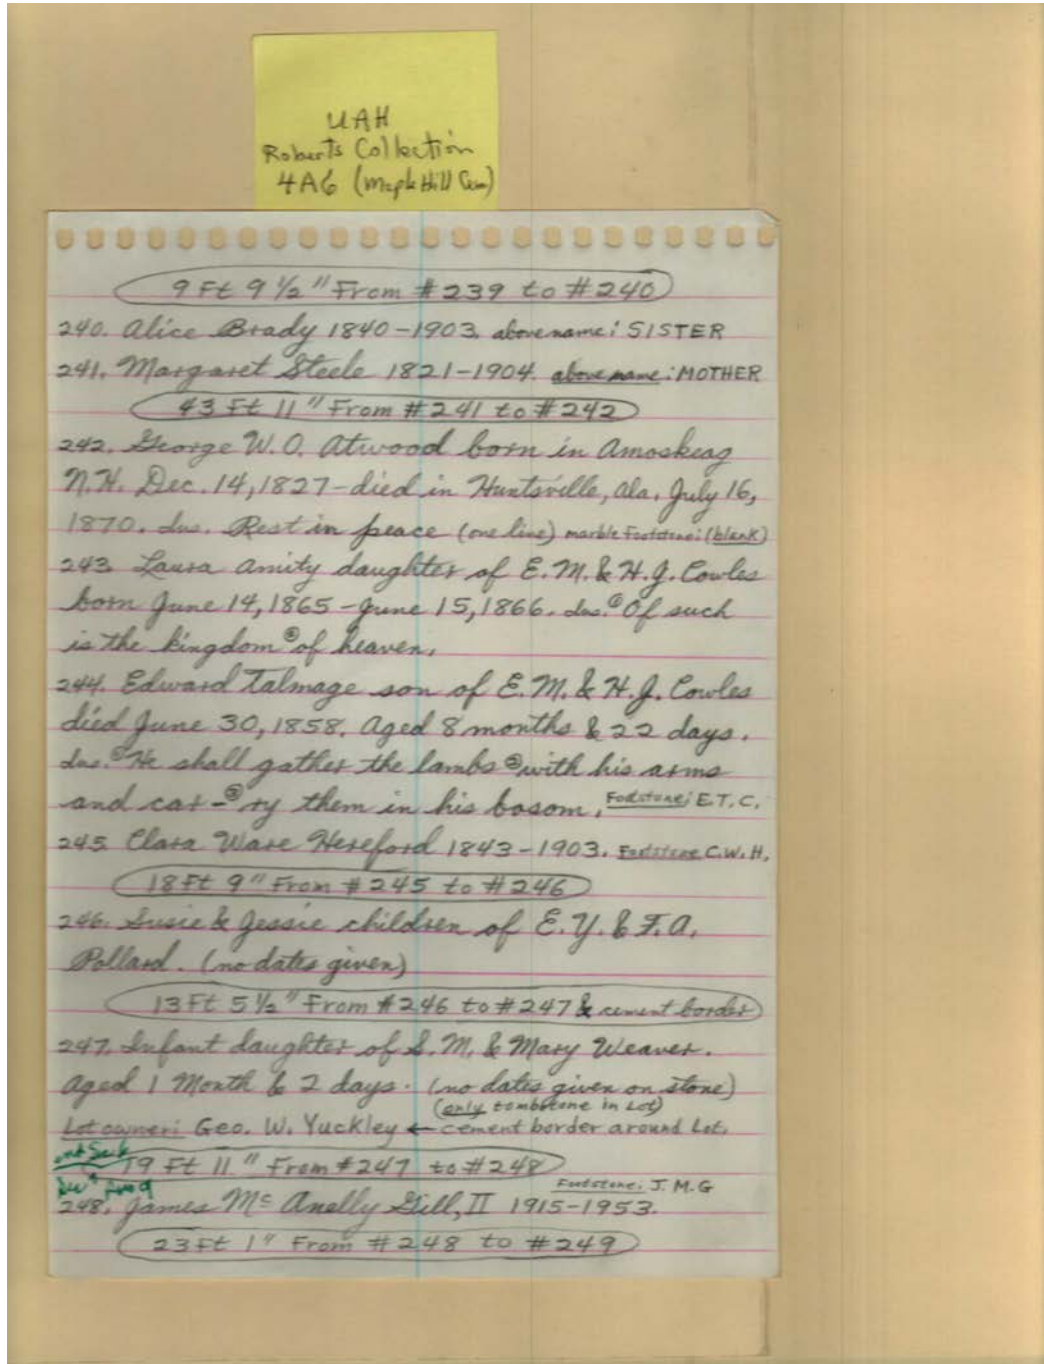 UAH
Roberts Collection
4A6 (Maple Hill Cem)
9 Ft 9 1/2" From #239 to #240
240. Alice Brady 1840-1903. above name: SISTER
241. Margaret Steele 1821-1904. above name: MOTHER
43 Ft 11" From #241 to #242
242. George W.O. Atwood born in Amoskeag
N.H. Dec. 14, 1827 - died in Huntsville, Ala. July 16,
1870. Ins. Rest in peace (one line) marble Footstone: (blank)
243. Laura Amity daughter of E.M. & H.J. Cowles
born June 14, 1865 - June 15, 1866. Ins. ① Of such
is the kingdom ② of heaven.
244. Edward Talmage son of E.M. & H.J. Cowles
died June 30, 1858. Aged 8 months & 22 days.
Ins. ① He shall gather the lambs ② with his arms
and car- ③ ry them in his bosom. Footstone: E.T.C.
245. Clara Ware Hereford 1843-1903. Footstone C.W.H.
18 Ft 9" From #245 to #246
246. Susie & Jessie children of E.Y. & F.A.
Pollard. (no dates given)
13 Ft 5 1/2" From #246 to #247 & cement border
247. Infant daughter of S.M. & Mary Weaver.
Aged 1 Month & 2 days. (no dates given on stone)
(only tombstone in Lot)
Lot owner: Geo. W. Yuckley ← cement border around Lot.
19 Ft 11" From #247 to #248
Footstone: J.M.G
248. James Mc Anelly Gill, II 1915-1953.
23 Ft 1" From #248 to #249